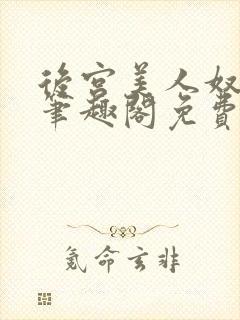 後宮美人奴
筆趣閣免費
氪命玄非